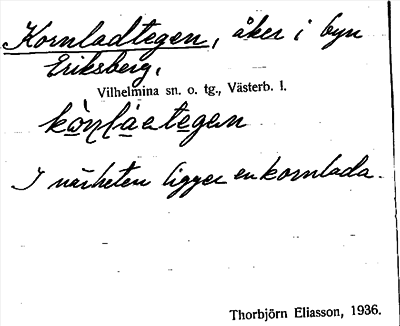 Kornladtegen, åker i byn
Eriksberg,
Vilhelmina sn. o. tg., Västerb. l.
I närheten ligger en kornlada.
Thorbjörn Eliasson, 1936.